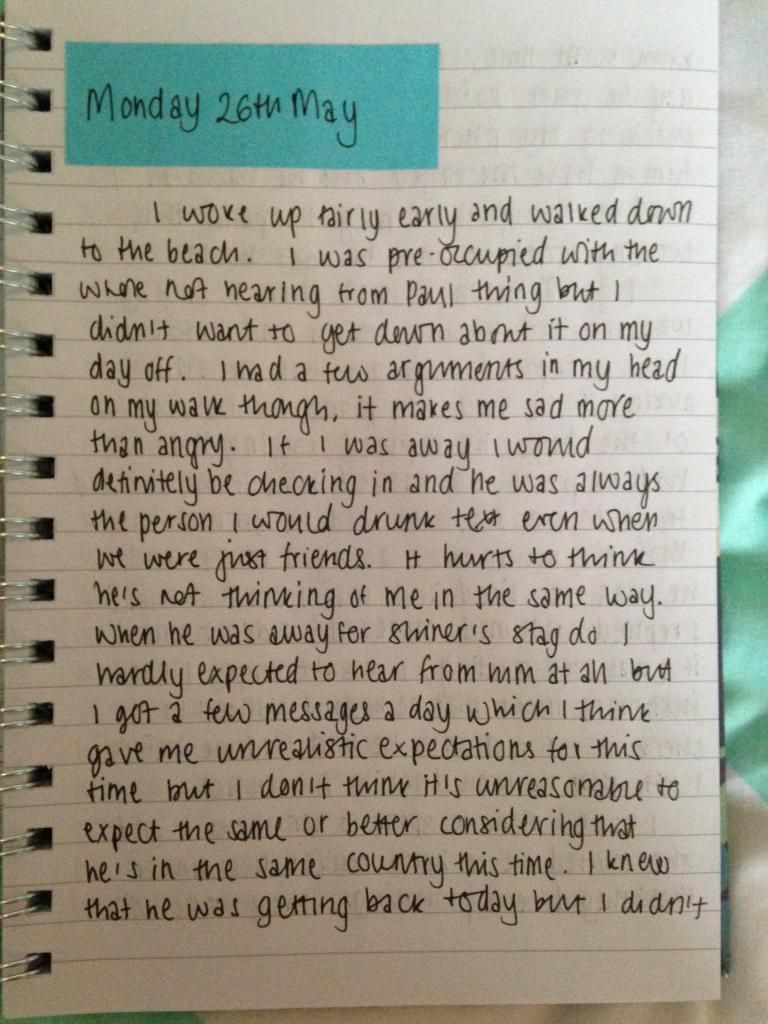 Monday 26th May
I woke up fairly early and walked down
to the beach. I was pre-occupied with the
whole not hearing from Paul thing but I
didn't want to get down about it on my
day off. I had a few arguments in my head
on my walk though, it makes me sad more
than angry. If I was away I would
definitely be checking in and he was always
the person I would drunk text even when
we were just friends. It hurts to think
he's not thinking of me in the same way.
When he was away for Shiner's stag do I
hardly expected to hear from him at all but
I got a few messages a day which I think
gave me unrealistic expectations for this
time but I don't think it's unreasonable to
expect the same or better considering that
he's in the same country this time. I knew
that he was getting back today but I didn't